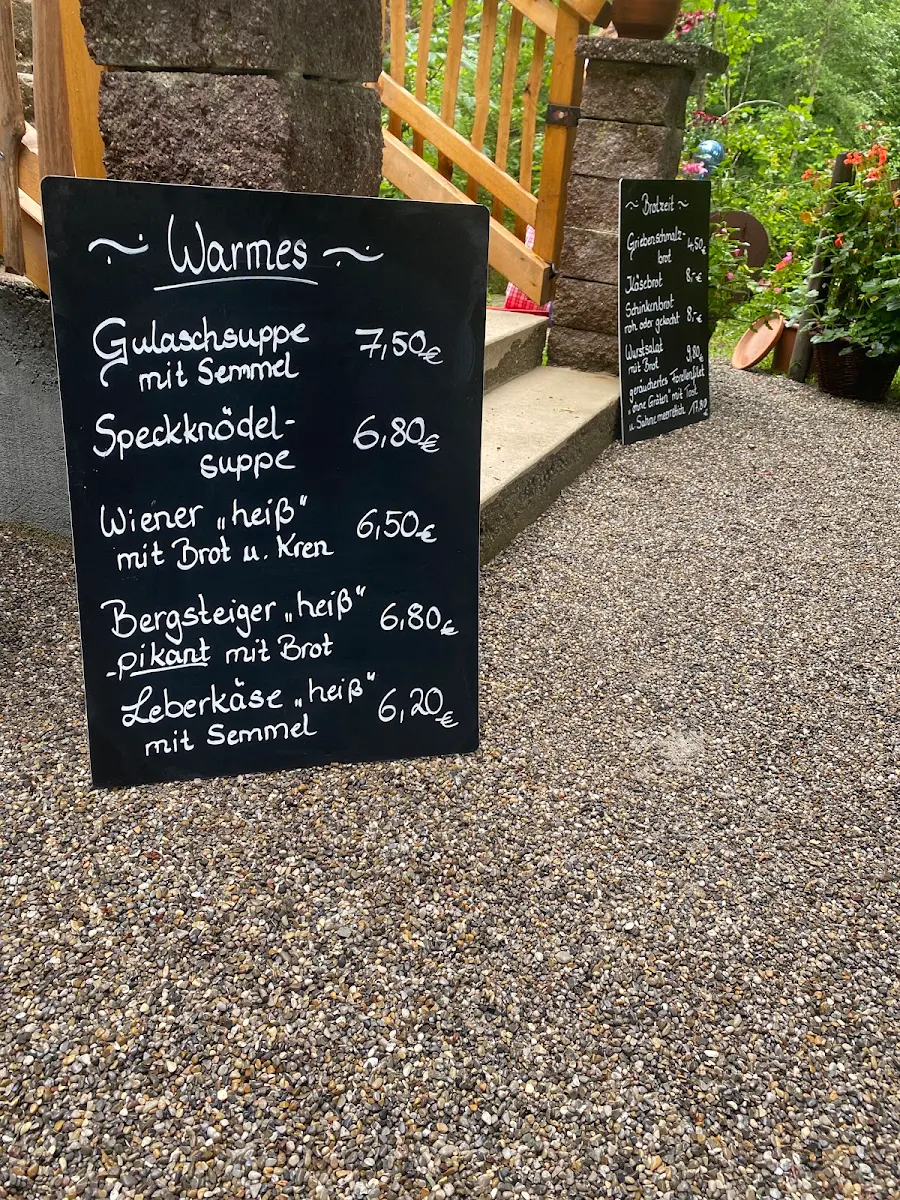 ~ Warmes ~
Gulaschsuppe 7,50€
mit Semmel
Speckknödel- 6,80€
suppe
Wiener „heiß“ 6,50€
mit Brot u. Kren
Bergsteiger „heiß“ 6,80€
-pikant mit Brot
Leberkäse „heiß“ 6,20€
mit Semmel
~ Brotzeit ~
Griebenschmalz- 4,50€
brot
Käsebrot 8,-€
Schinkenbrot
roh oder gekocht 8,-€
Wurstsalat 9,80€
mit Brot
geräuchertes Forellenfilet
„ohne Gräten“ mit Toast
u. Sahnemeerrettich 17,80